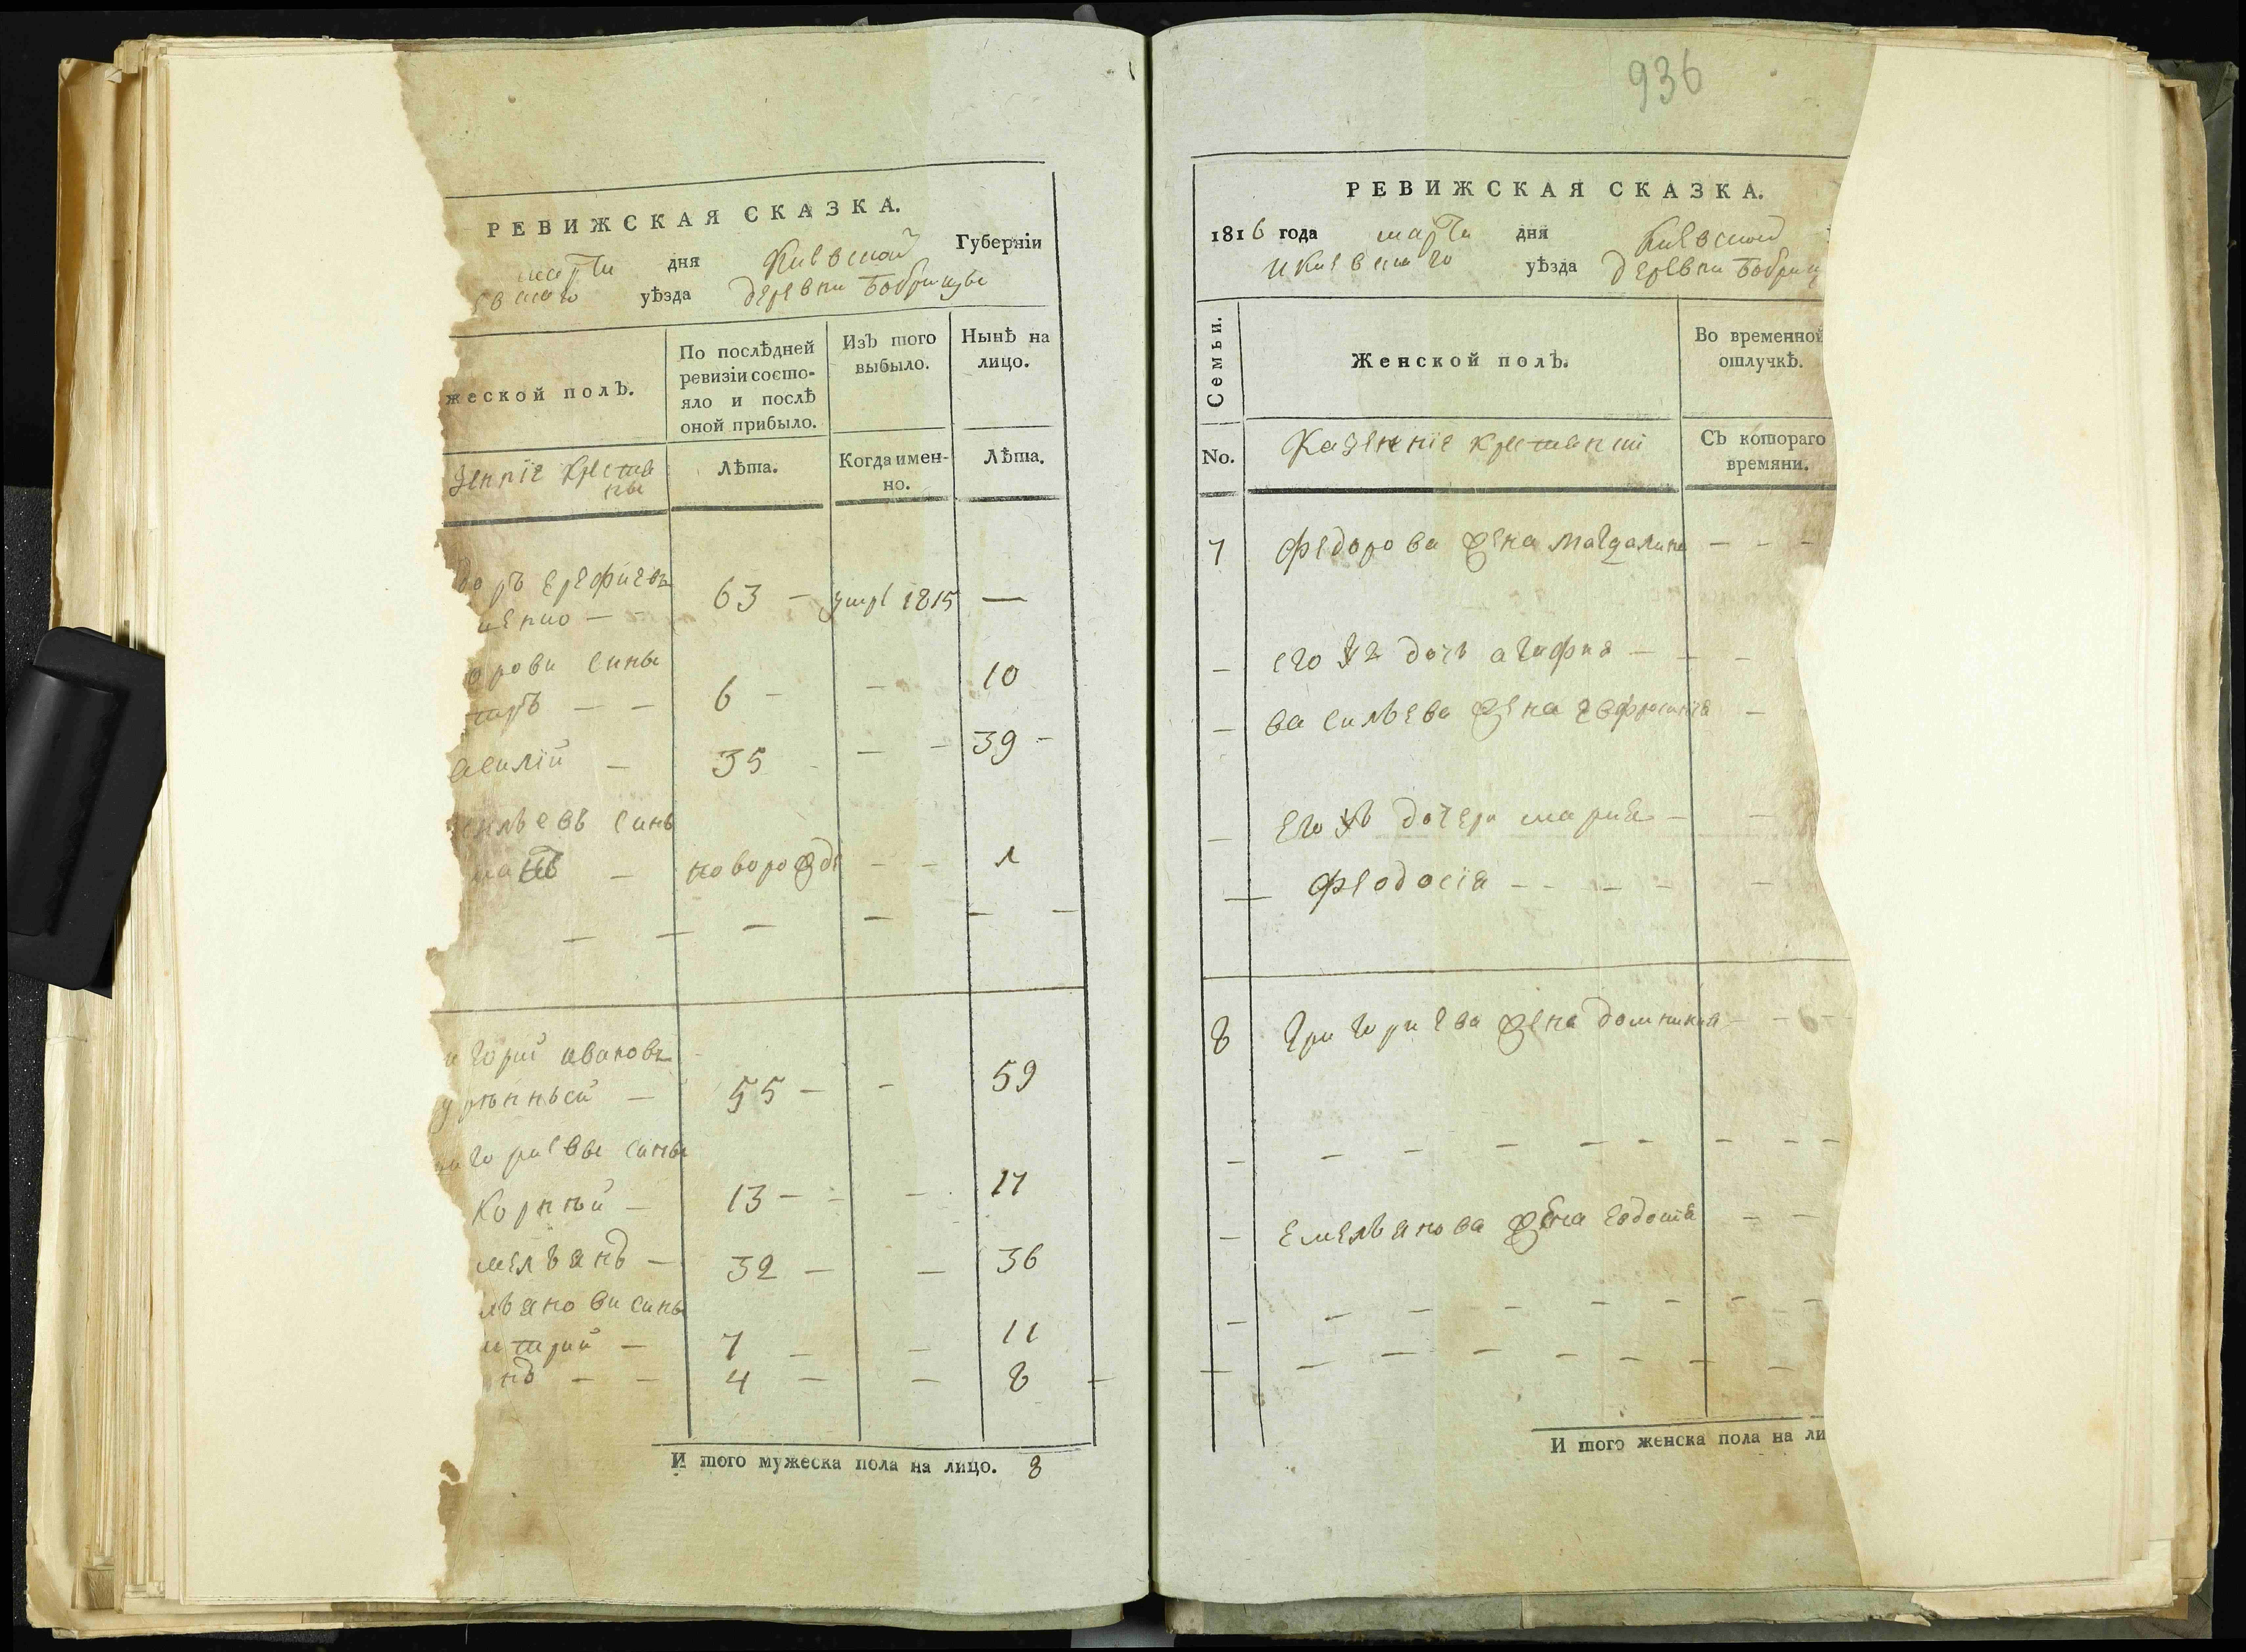 936
РЕВИЖСКАЯ СКАЗКА.
марта дня Киевской Губернїи
евскаго уѣзда деревни Бобрицы
жеской полъ.
По послѣдней
ревизїи состо-
яло и послѣ
оной прибыло.
Изъ того
выбыло.
Нынѣ на
лицо.
зеннїе крестья
ны
Лѣта.
Когда имен-
но.
Лѣта.
доръ Ерефиевъ
63 - умре 1815 —
орови сины
6 - - 10
асилїй - 35 - - 39 -
силъевъ синъ
новорожде - - 1
игорий ивановъ
55 - - 59
игориевы сины
Корнѣй - 13 - - - 17
мелъянъ - 32 - - 36
лъянови сины
итрий - 7 - - 11
нъ - - 4 - - 8
И того мужеска пола на лицо. 8
РЕВИЖСКАЯ СКАЗКА.
1816 года марта дня Киевской
и Киевскаго уѣзда деревни Бобриц
Семьи.
Женской полъ.
Во временной
отлучкѣ.
No.
Казеннїе крестянки
Съ котораго
времяни.
7 Федорова жена Магдалина - - -
- его дочь агафия - - -
- василъева жена - 
- Его дочери мария - -
- Феодосїя - - - - -
8 Григориева жена домникия - - -
- - - - - - - - -
- Емелъянова жена - -
- - - - - - - - -
- - - - - - - -
И того женска пола на ли